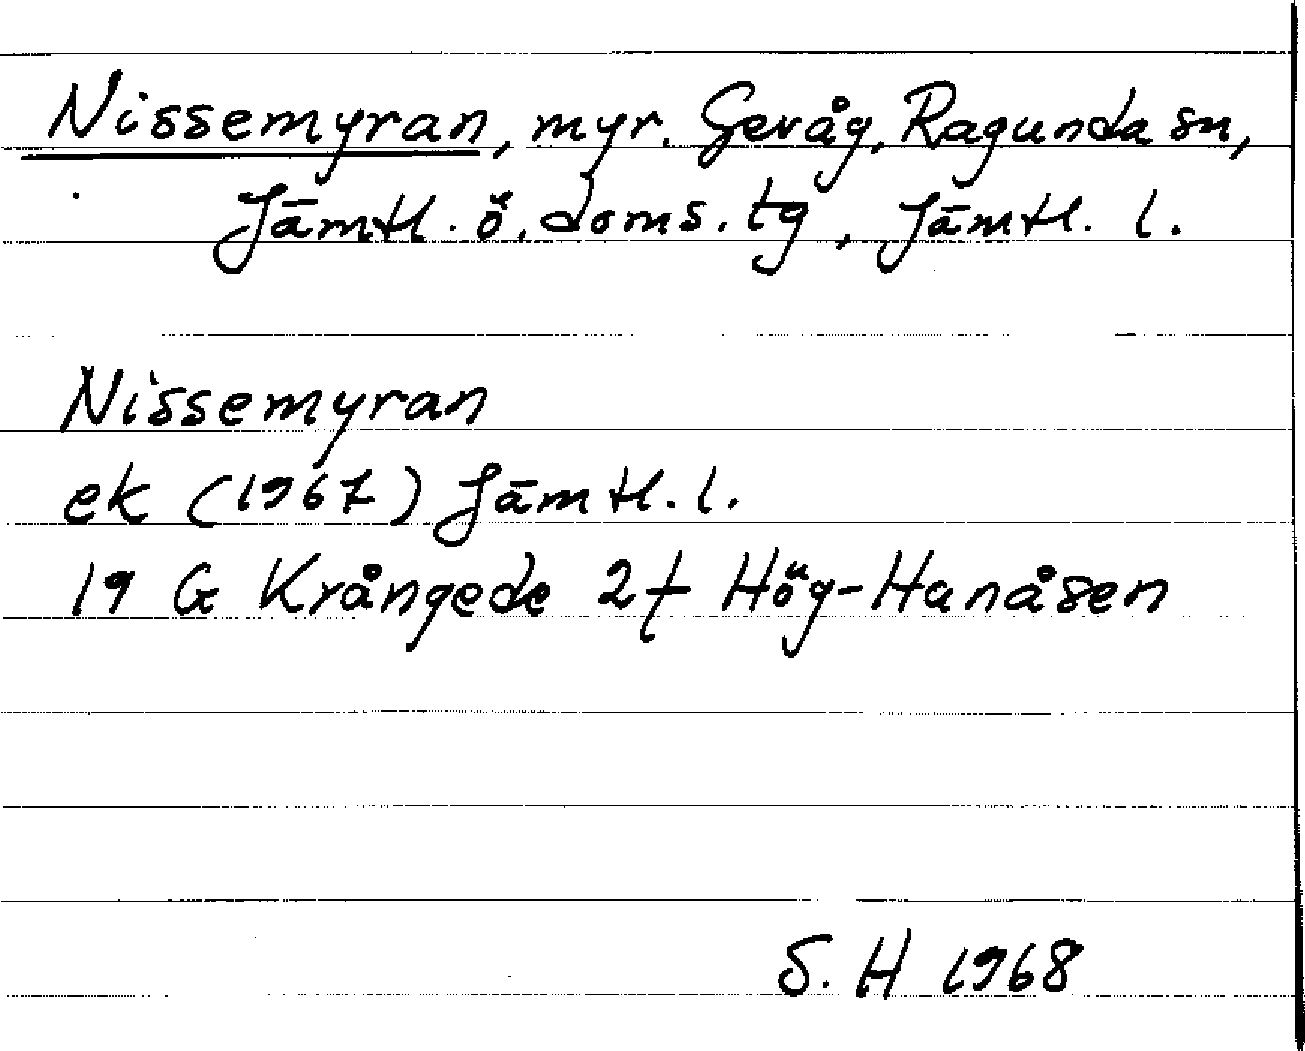 Nissemyran, myr. Gevåg, Ragunda sn,
Jämtl. ö. doms. tg, Jämtl. l.
Nissemyran
ek (1967) Jämtl. l.
19 G Krångede 2f Hög-Hanåsen
S. H 1968